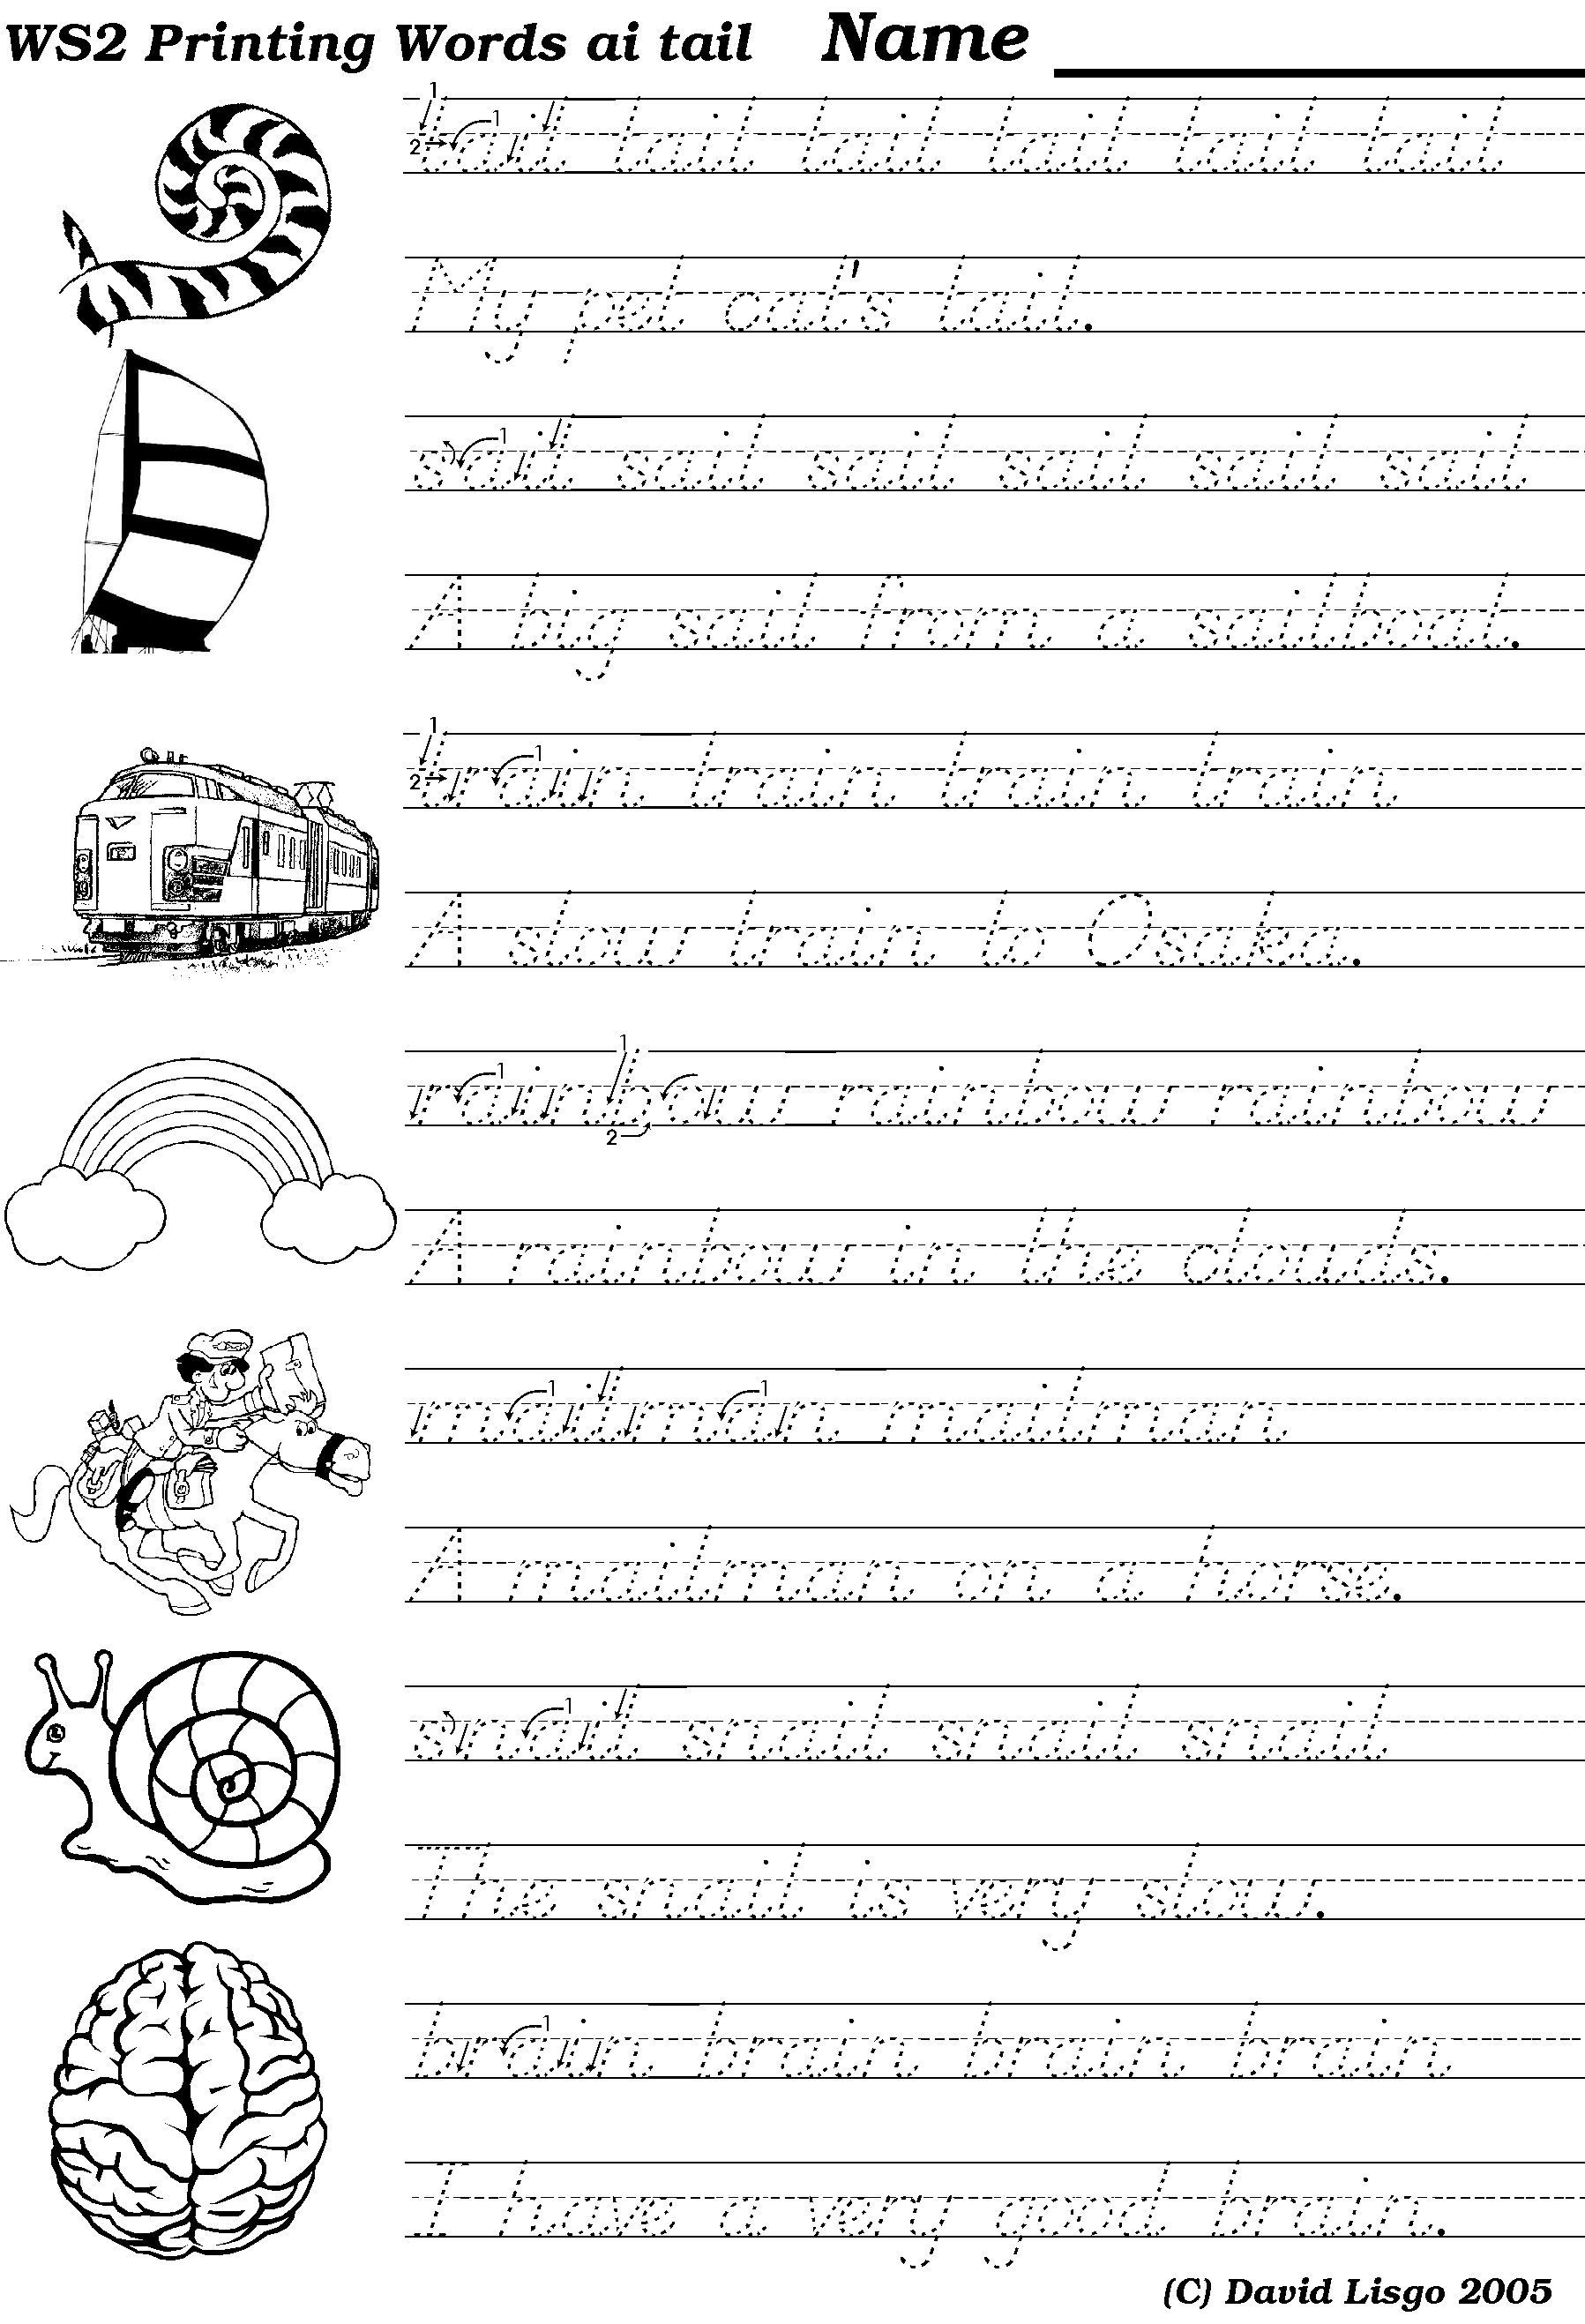 WS2 Printing Words ai tail Name
tail tail tail tail tail tail
My pet cat's tail.
sail sail sail sail sail sail
A big sail from a sailboat.
train train train train
A slow train to Osaka.
rainbow rainbow rainbow
A rainbow in the clouds.
mailman mailman
A mailman on a horse.
snail snail snail snail
The snail is very slow.
brain brain brain brain
I have a very good brain.
(C) David Lisgo 2005